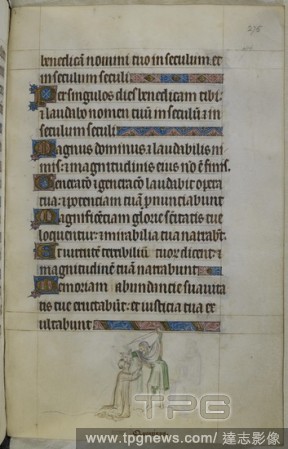 275
benedicam nomini tuo in seculum et
in seculum seculi
Per singulos dies benedicam tibi:
⁊ laudabo nomen tuũ in seculũ ⁊ in
seculum seculi
Magnus dominus ⁊ laudabilis ni
mis: ⁊ magnitudinis eius nõ ẽ finis.
Generatõ ⁊ generatõ laudabit opera
tua: ⁊ potenciam tuã pnunciabunt
Magnificenciam glorie scitatis tue
loquentur: ⁊ mirabilia tua narrabt̃.
Et virtutẽ terribiliũ tuor dicent: ⁊
magnitudinẽ tuam narrabunt
Memoriam abundancie suauita
tis tue eructabũt: et iusticia tua ex
ultabunt
TPG
www.tpgnews.com/ 達志影像